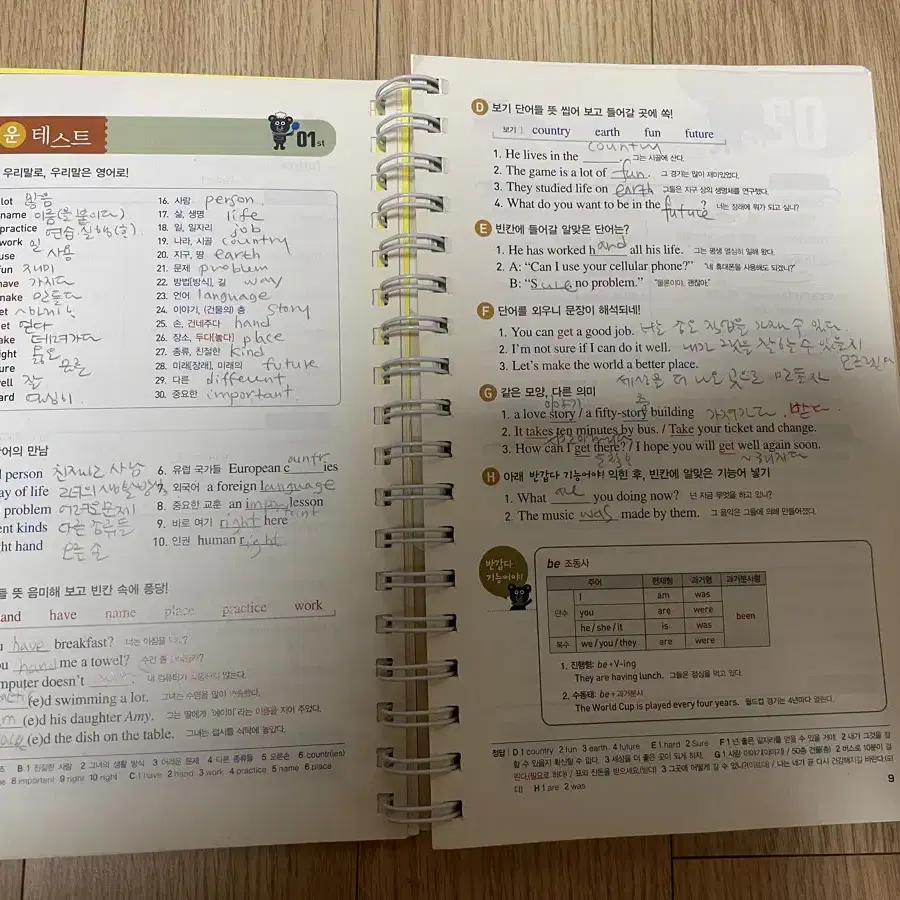 운 테스트
01st
우리말로, 우리말은 영어로!
lot 많음
name 이름(을 붙이다)
practice 연습, 실행(하)
work 일
use 사용
fun 재미
have 가지다
make 만들다
get 얻다
take 데려가다
right 옳은
well 잘
hard 열심히
16. 사람 person
17. 삶, 생명 life
18. 일, 일자리 job
19. 나라, 시골 country
20. 지구, 땅 earth
21. 문제 problem
22. 방법[방식], 길 way
23. 언어 language
24. 이야기, (건물의) 층 story
25. 손, 건네주다 hand
26. 장소, 두다[놓다] place
27. 종류, 친절한 kind
28. 미래[장래], 미래의 future
29. 다른 different
30. 중요한 important
어의 만남
person 친절한 사람
way of life
problem 어려운 문제
ent kinds 다른 종류들
ght hand 오른 손
6. 유럽 국가들 European countries
7. 외국어 a foreign language
8. 중요한 교훈 an important lesson
9. 바로 여기 right here
10. 인권 human right
들 뜻 음미해 보고 빈칸 속에 퐁당!
hand have name place practice work
u have breakfast? 너는 아침을
ou hand me a towel? 수건 좀
mputer doesn't 내 컴퓨터가
(e)d swimming a lot. 그녀는 수영을 많이 연습했다.
(e)d his daughter Amy. 그는 딸에게 '에이미'라는 이름을 지어 주었다.
(e)d the dish on the table. 그녀는 접시를 식탁에 놓았다.
B 1 친절한 사람 2 그녀의 생활 방식 3 어려운 문제 4 다른 종류들 5 오른손 6 countr(ies)
8 important 9 right 10 right C 1 have 2 hand 3 work 4 practice 5 name 6 place
D 보기 단어들 뜻 씹어 보고 들어갈 곳에 쏙!
보기 country earth fun future
1. He lives in the country. 그는 시골에 산다.
2. The game is a lot of fun. 그 경기는 많이 재미있었다.
3. They studied life on earth 그들은 지구 상의 생명체를 연구했다.
4. What do you want to be in the future? 너는 장래에 뭐가 되고 싶니?
E 빈칸에 들어갈 알맞은 단어는?
1. He has worked hard all his life. 그는 평생 열심히 일해 왔다.
2. A: “Can I use your cellular phone?” “네 휴대폰을 사용해도 되겠니?”
B: “Sure, no problem.” “물론이야. 괜찮아.”
F 단어를 외우니 문장이 해석되네!
1. You can get a good job. 너는 좋은 직업을 가질 수 있다.
2. I'm not sure if I can do it well. 내가 그것을 잘 할 수 있을지 모르겠다
3. Let's make the world a better place.
세상을 더 나은 곳으로 만들자
G 같은 모양, 다른 의미
이야기 층
1. a love story / a fifty-story building
2. It takes ten minutes by bus. / Take your ticket and change. 받다.
3. How can I get there? / I hope you will get well again soon.
~해지다
H 아래 반갑다 기능어야! 익힌 후, 빈칸에 알맞은 기능어 넣기
1. What are you doing now? 넌 지금 무엇을 하고 있니?
2. The music was made by them. 그 음악은 그들에 의해 만들어졌다.
반갑다 기능어야!
be 조동사
주어 현재형 과거형 과거분사형
단수 I am was been
you are were
he / she / it is was
복수 we / you / they are were
1. 진행형: be+V-ing
They are having lunch. 그들은 점심을 먹고 있다.
2. 수동태: be+과거분사
The World Cup is played every four years. 월드컵 경기는 4년마다 열린다.
정답 D 1 country 2 fun 3 earth 4 future E 1 hard 2 Sure F 1 넌 좋은 일자리를 얻을 수 있을 거야. 2 내가 그것을 잘
할 수 있을지 확신할 수 없다. 3 세상을 더 좋은 곳이 되게 하자. G 1 사랑 이야기(이야기) / 50층 건물(층) 2 버스로 10분이 걸
린다.(필요로 하다) / 표와 잔돈을 받으세요.(받다) 3 그곳에 어떻게 갈 수 있니?(이르다) / 나는 네가 곧 다시 건강해지길 바란다.(되
다) H 1 are 2 was
9